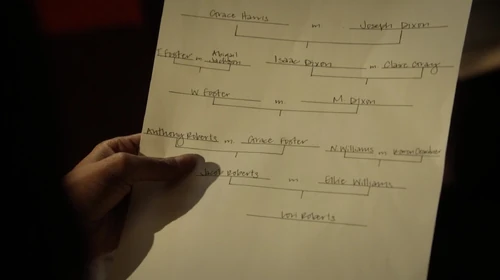 Grace Harris m Joseph Dixon
T. Foster m Abigail Jackson Isaac Dixon m Clare
W. Foster m M. Dixon
Anthony Roberts m Grace Foster N. Williams m Karen
Roberts m Ellie Williams
Lori Roberts